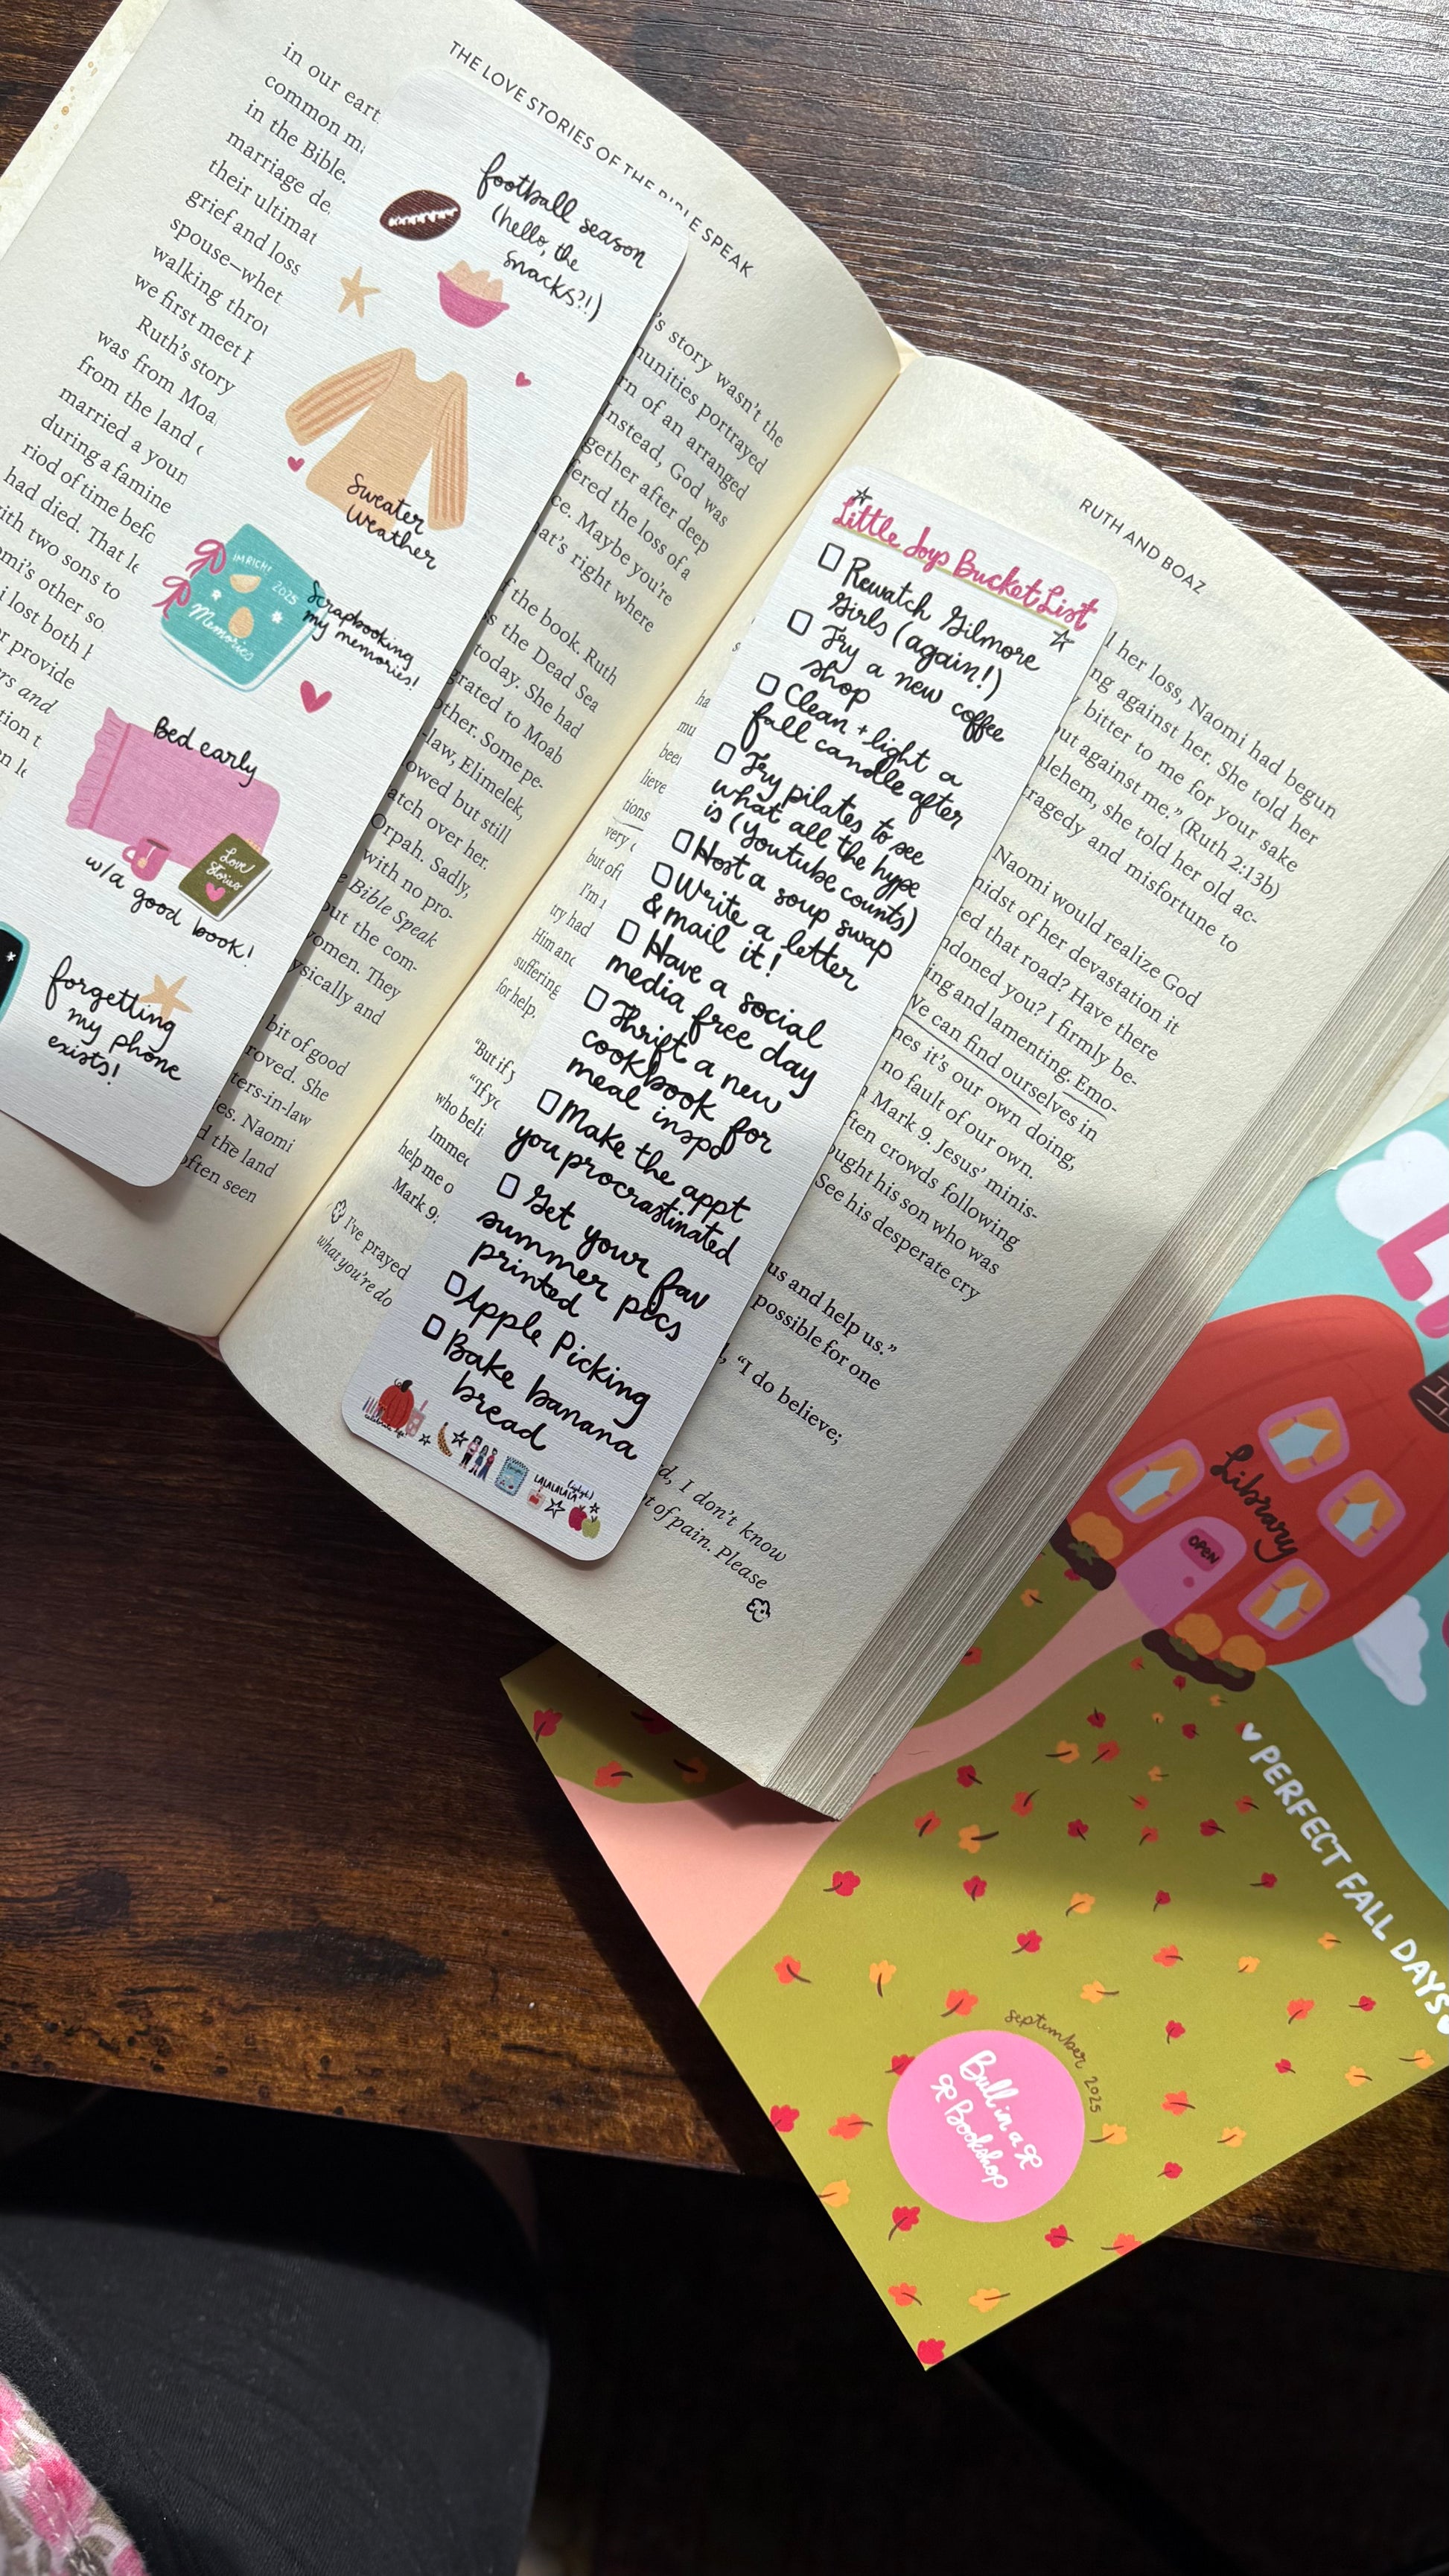 THE LOVE STORIES OF THE BIBLE SPEAK
in our eart
common m
in the Bible.
marriage de
their ultimat
grief and loss
spouse—whet
walking throu
we first meet
Ruth's story
was from Moa
from the land
married a youn
during a famine
riod of time befo
had died. That le
ith two sons to
omi's other so
i lost both
or provide
rs and
tion t
's story wasn't the
munities portrayed
rn of an arranged
Instead, God was
gether after deep
fered the loss of a
ce. Maybe you're
hat's right where
f the book, Ruth
ss the Dead Sea
today. She had
grated to Moab
other. Some pe-
-law, Elimelek,
owed but still
atch over her.
Orpah. Sadly,
with no pro-
e Bible Speak
out the com-
women. They
ysically and
bit of good
roved. She
ters-in-law
es. Naomi
d the land
often seen
football season
(hello, the
snacks?!)
Sweater
Weather
IM RICH!
2025
Memories
Scrapbooking
my memories!
Bed early
Love
Stories
w/a good book!
forgetting
my phone
exists!
RUTH AND BOAZ
l her loss, Naomi had begun
ng against her. She told her
y bitter to me for your sake
out against me." (Ruth 2:13b)
hlehem, she told her old ac-
ragedy and misfortune to
Naomi would realize God
midst of her devastation it
ed that road? Have there
ndoned you? I firmly be-
ing and lamenting. Emo-
We can find ourselves in
nes it's our own doing,
no fault of our own.
n Mark 9. Jesus' minis-
ften crowds following
ought his son who was
See his desperate cry
us and help us."
possible for one
"I do believe;
d, I don't know
t of pain. Please
ha
mu
been
lieve
tions
very
but oft
I'm
try had
Him and
suffering
for help.
"But if y
"If yo
who beli
Immed
help me o
Mark 9:
I've prayed
what you're do
Little Joys Bucket List
Rewatch Gilmore
Girls (again!)
Try a new coffee
shop
Clean + light a
fall candle after
Try pilates to see
what all the hype
is (Youtube counts)
Host a soup swap
Write a letter
& mail it!
Have a social
media free day
Thrift a new
cookbook for
meal inspo
Make the appt
you procrastinated
Get your fav
summer pics
printed
Apple Picking
Bake banana
bread
LALALALALA
L
Library
OPEN
PERFECT FALL DAYS
september 2025
Bull in a
Bookshop